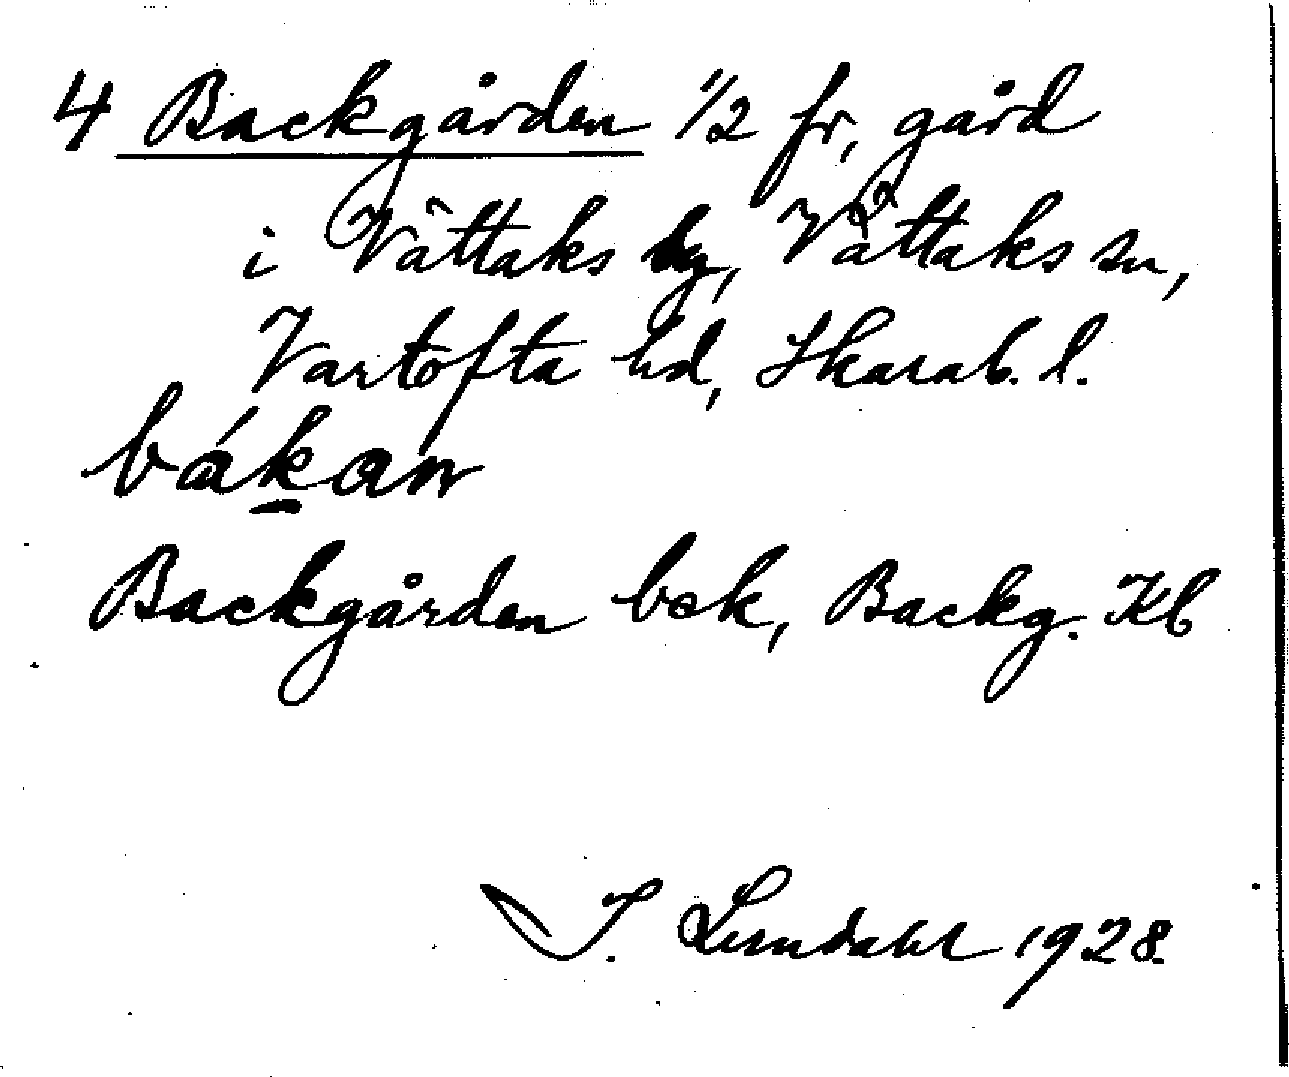 4 Backgården 1/2 fr, gård
i Vättaks by, Vättaks sn,
Vartofta hd, Skarab. l.
bákan
Backgården bok, Backg. Kb
I. Lundahl 1928